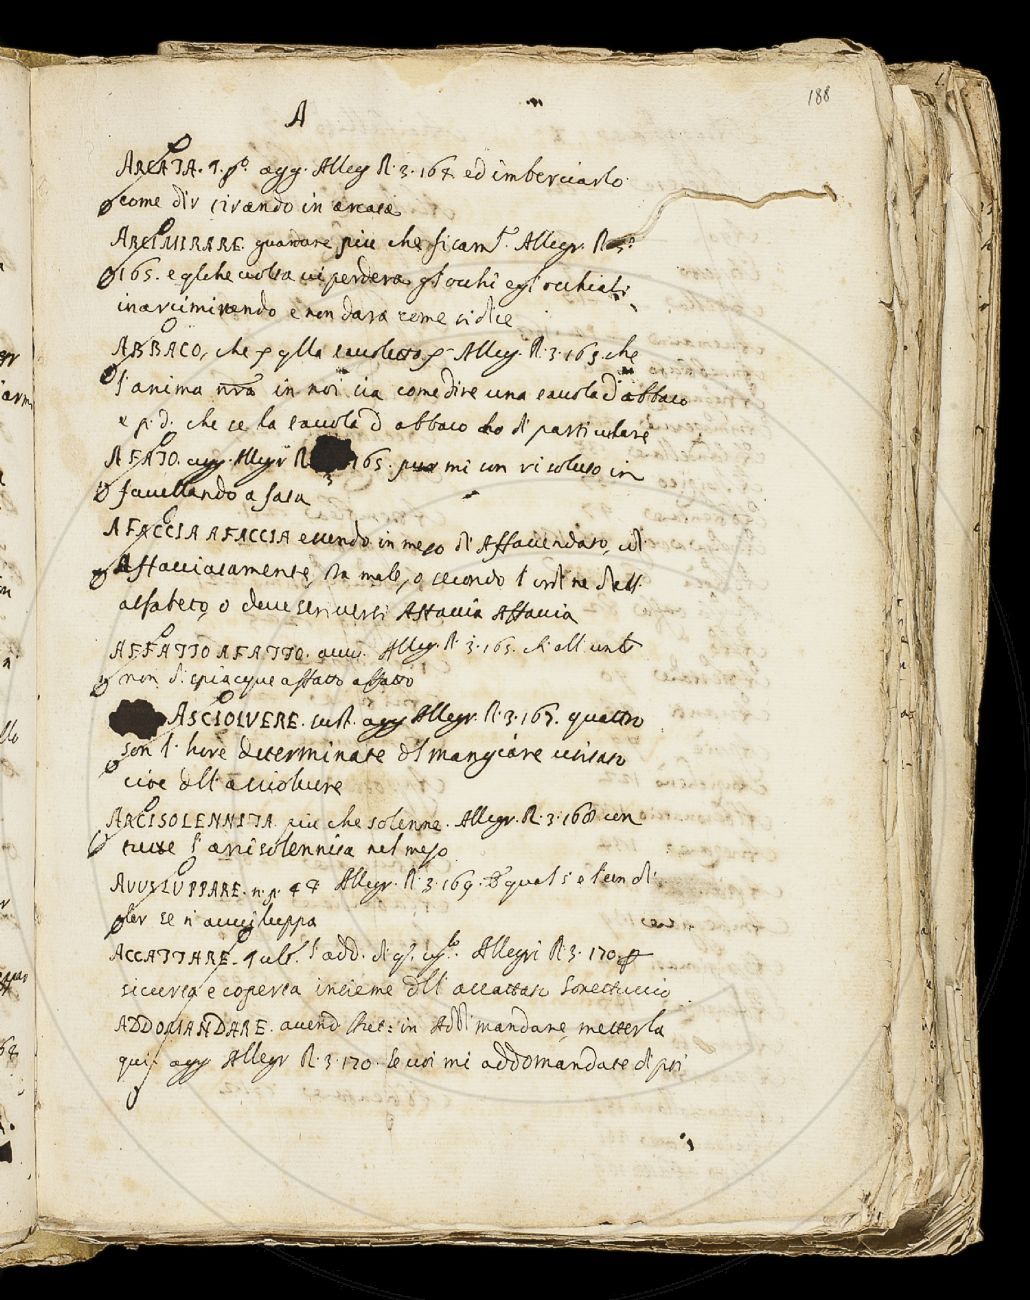 188
A
ARCATA. T. pº. agg. Alleg R. 3. 167 ed imberciarlo
come dir tirando in arcata
ARCIMIRARE. guardare più che ficam.te Allegr. R. 3.
165. e qlche volta vi perderà gl'occhi e gl'occhiali
in arcimirando e non darà come si dice
ABBACO, che p qlla tavoletta p Alleg. R. 3. 165. che
l'anima nra in noi sia come dire una tavola d'abbaco
e p. d. che se la tavola d abbaco ho di particulare
A FATO. agg. Allegr R. 3 165. pur mi son risoluto in
favellando a fata
A FACCIA A FACCIA essendo in mezo di Affaccendato, ed
Affacciatamente, sta male, o secondo l'ordine dell
alfabeto, o deve scriversi Affaccia Affaccia
AFFATTO AFATTO. avv. Allegr. R. 3. 165.
non dispiacque affatto affatto
ASCIOLVERE. sust. agg Allegr. R. 3. 167. quattro
son l'hore determinate dl mangiare usitato
cioe dll'asciolvere
ARCISOLENNITA. più che solenne. Allegr. R. 3. 168 con
tutte l'arcisolennità nel mezo
AVVILUPPARE. n. p. 47 Allegr. R. 3. 169. qual s'è l'un di
lor se n'avviluppa
ACCATTARE. l'add. Allegri R. 3. 170.
sicurtà e coperta insieme dll'accattato Sonettuccio
ADDOMANDARE. avend in Addimandare, metterla
qui. agg Allegr R. 3. 170. Se voi mi addomandate di poi